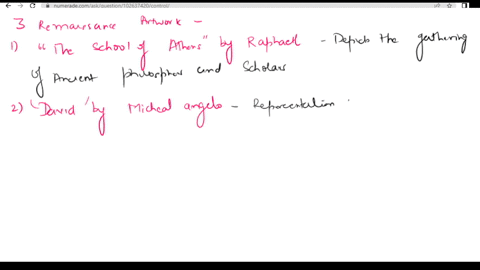 numerade.com/ask/question/102637420/control/
3 Remaissance Artwork -
1) "The School of Athens" by Raphaell - Depicts the gathering
of Ancient philosophers and Scholars
2) 'David' by Micheal angelo - Representation